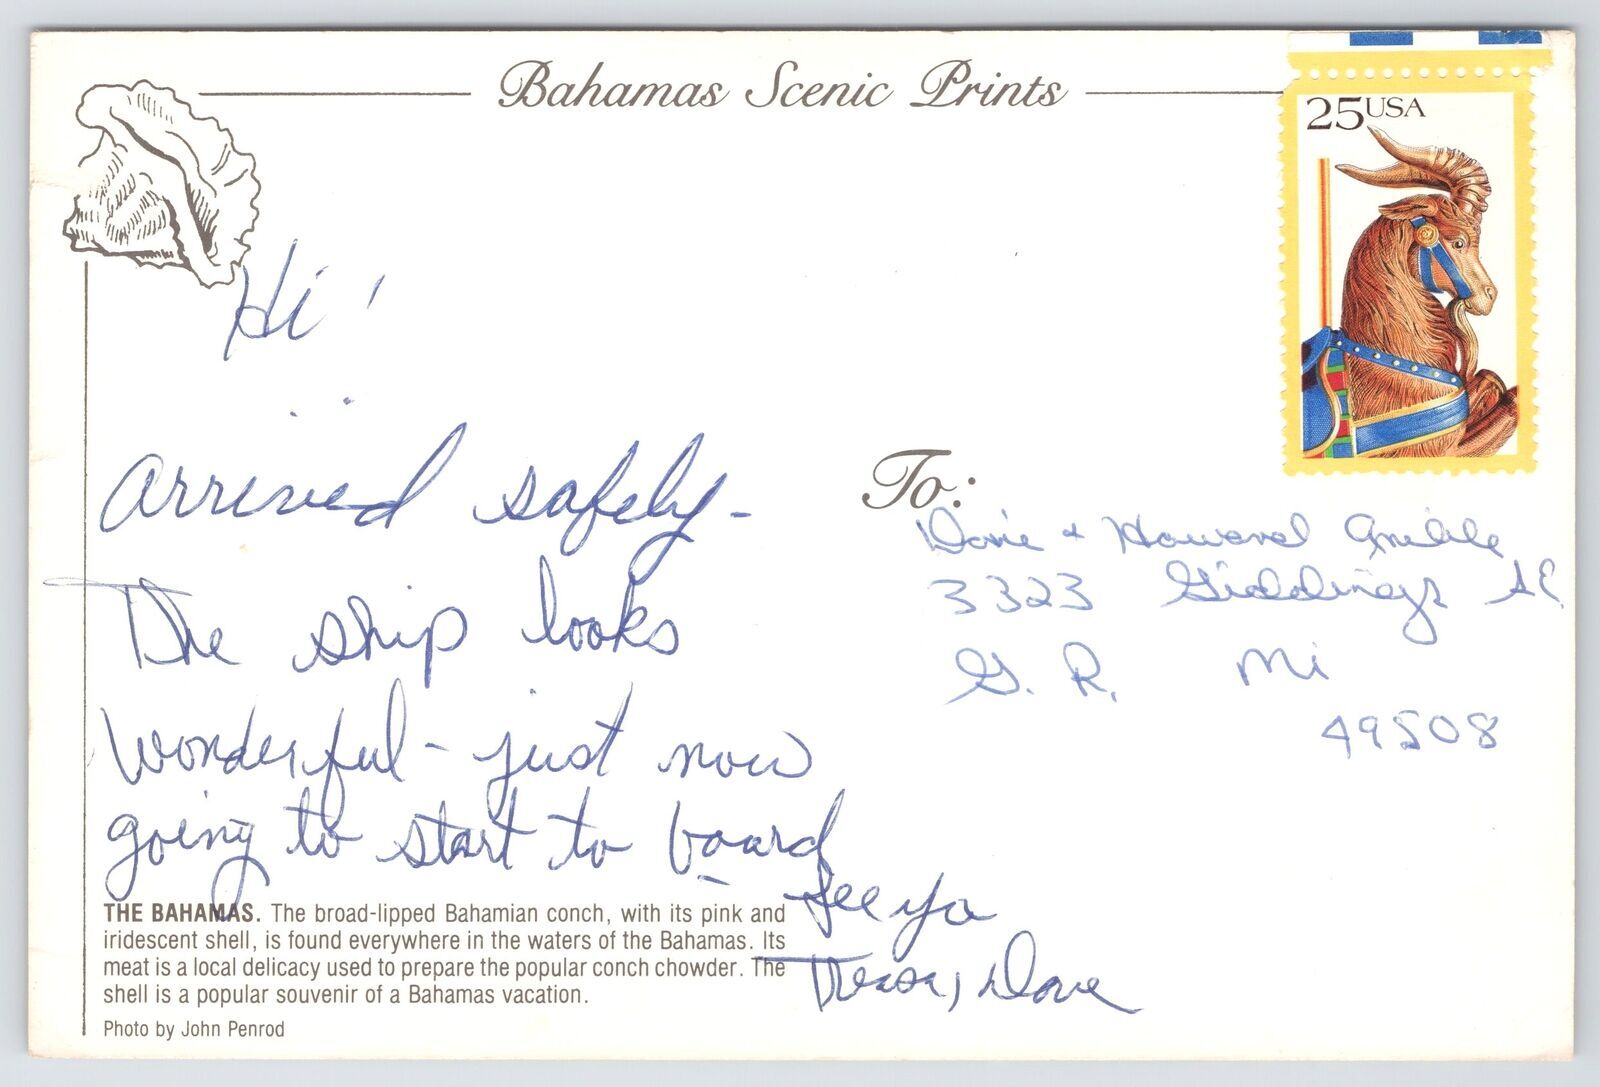 Bahamas Scenic Prints
25 USA
Hi!
Arrived safely -
The ship looks
wonderful - just now
going to start to board
See ya
Dave
To:
& Howard
3323 Giddings S.E.
G. R. Mi
49508
THE BAHAMAS. The broad-lipped Bahamian conch, with its pink and
iridescent shell, is found everywhere in the waters of the Bahamas. Its
meat is a local delicacy used to prepare the popular conch chowder. The
shell is a popular souvenir of a Bahamas vacation.
Photo by John Penrod